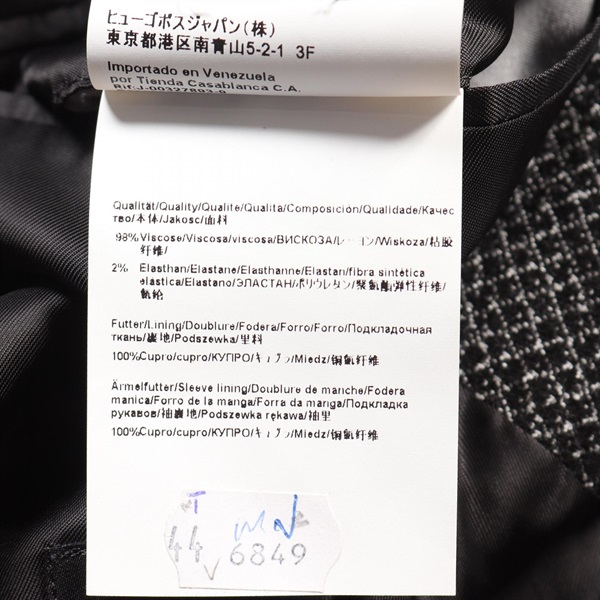 ヒューゴボスジャパン(株)
東京都港区南青山5-2-1 3F
Importado en Venezuela
por Tienda Casablanca C.A.
Rif:J-00327893-9
Qualität/Quality/Qualite/Qualita/Composición/Qualidade/Качес
тво/本体/Jakosc/面料
98%Viscose/Viscosa/viscosa/ВИСКОЗА/レーヨン/Wiskoza/粘胶
纤维/
2% Elasthan/Elastane/Elasthanne/Elastan/fibra sintética
elástica/Elastano/ЭЛАСТАН/ポリウレタン/聚氨酯弹性纤维/
氨纶
Futter/Lining/Doublure/Fodera/Forro/Forro/Подкладочная
ткань/裏地/Podszewka/里料
100%Cupro/cupro/КУПРО/キュプラ/Miedz/铜氨纤维
Ärmelfutter/Sleeve lining/Doublure de manche/Fodera
manica/Forro de la manga/Forra da manga/Подкладка
рукавов/袖裏地/Podszewka rękawa/袖里
100%Cupro/cupro/КУПРО/キュプラ/Miedz/铜氨纤维
44 6849